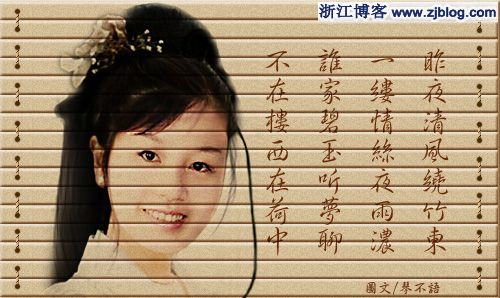 浙江博客 www.zjblog.com
昨夜清風繞竹東
一縷情絲夜雨濃
誰家碧玉听夢聊
不在樓西在荷中
圖文/琴不語